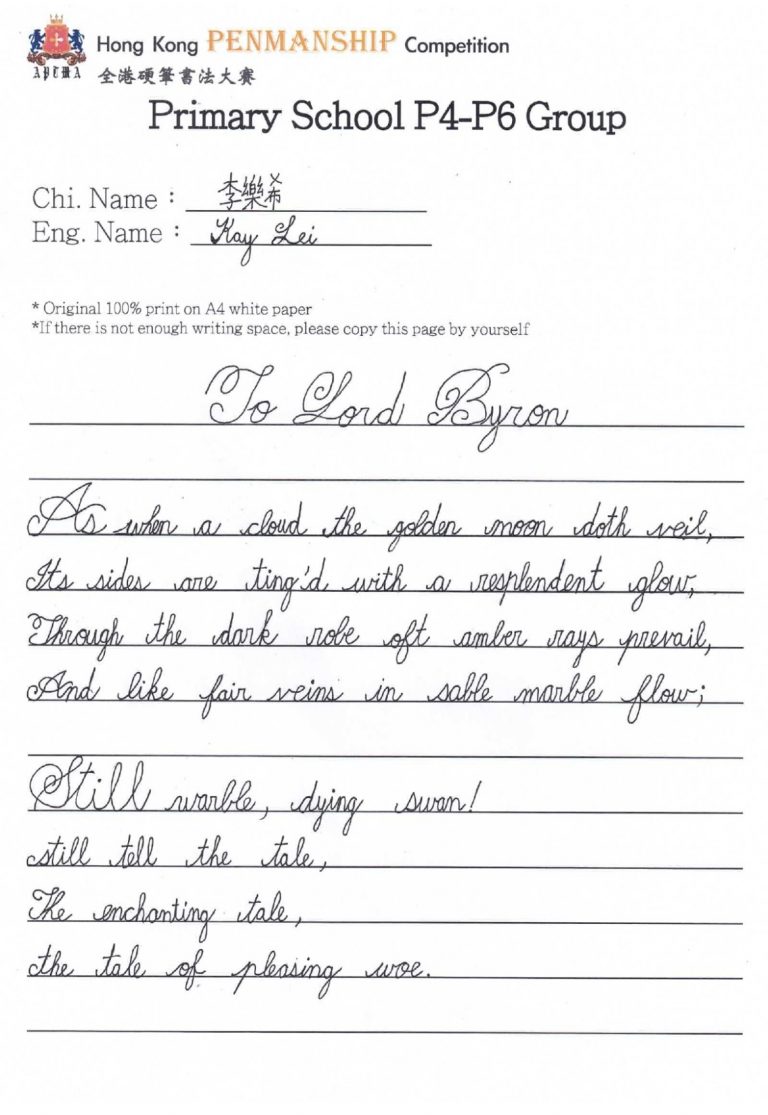 Hong Kong PENMANSHIP Competition
APTMA
全港硬筆書法大賽
Primary School P4-P6 Group
Chi. Name : 李樂希
Eng. Name : Kay Lei
* Original 100% print on A4 white paper
*If there is not enough writing space, please copy this page by yourself
To Lord Byron
As when a cloud the golden moon doth veil,
Its sides are ting'd with a resplendent glow,
Through the dark robe oft amber rays prevail,
And like fair veins in sable marble flow;
Still warble, dying swan!
still tell the tale,
The enchanting tale,
the tale of pleasing woe.